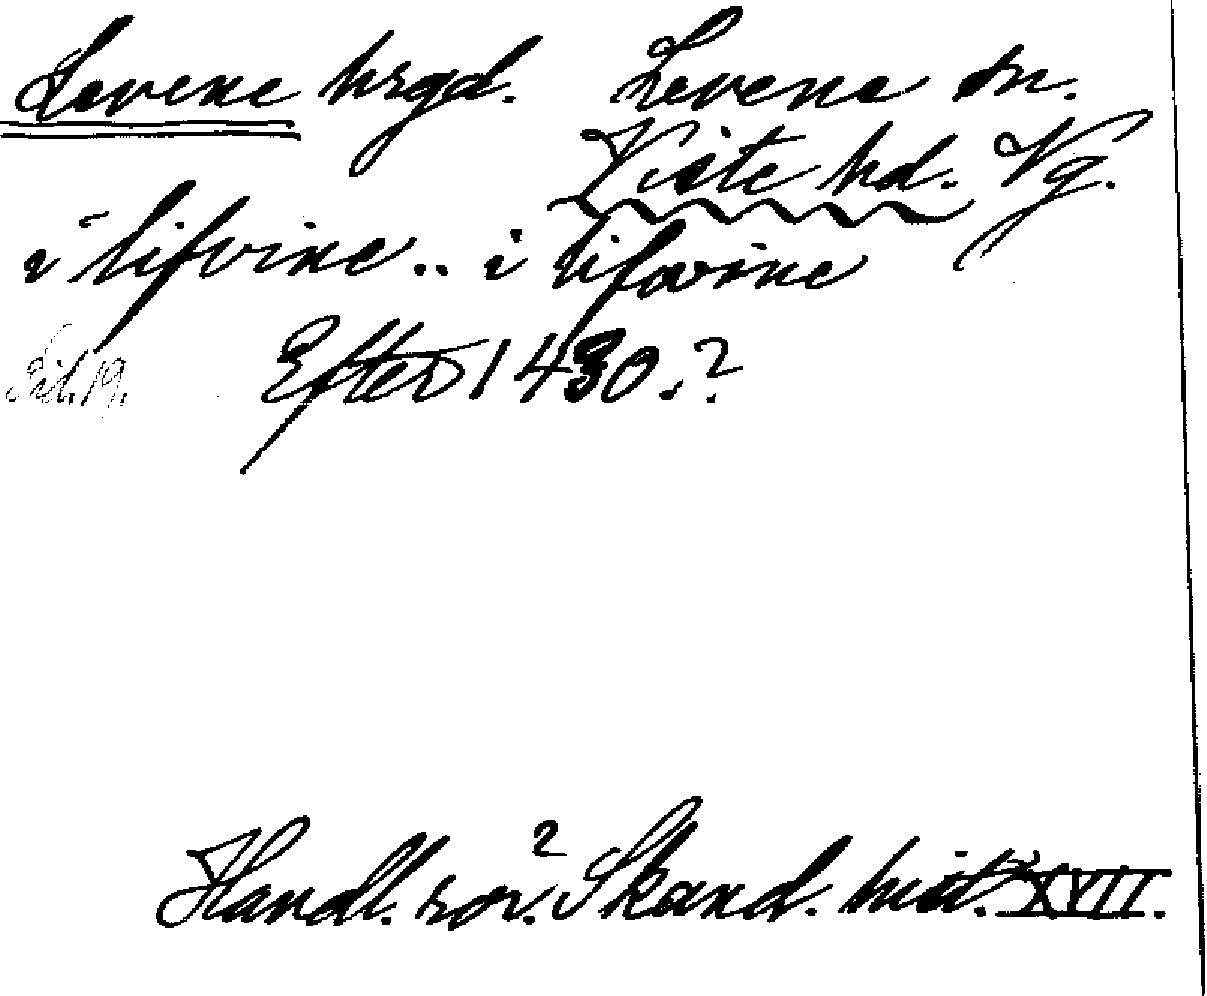 Levene hrgd. Levene sn.
Viste hd. Vg.
i lifvine.. i lifvine
Efter 1430.?
Handl. rör. Skand. hist. XVII.